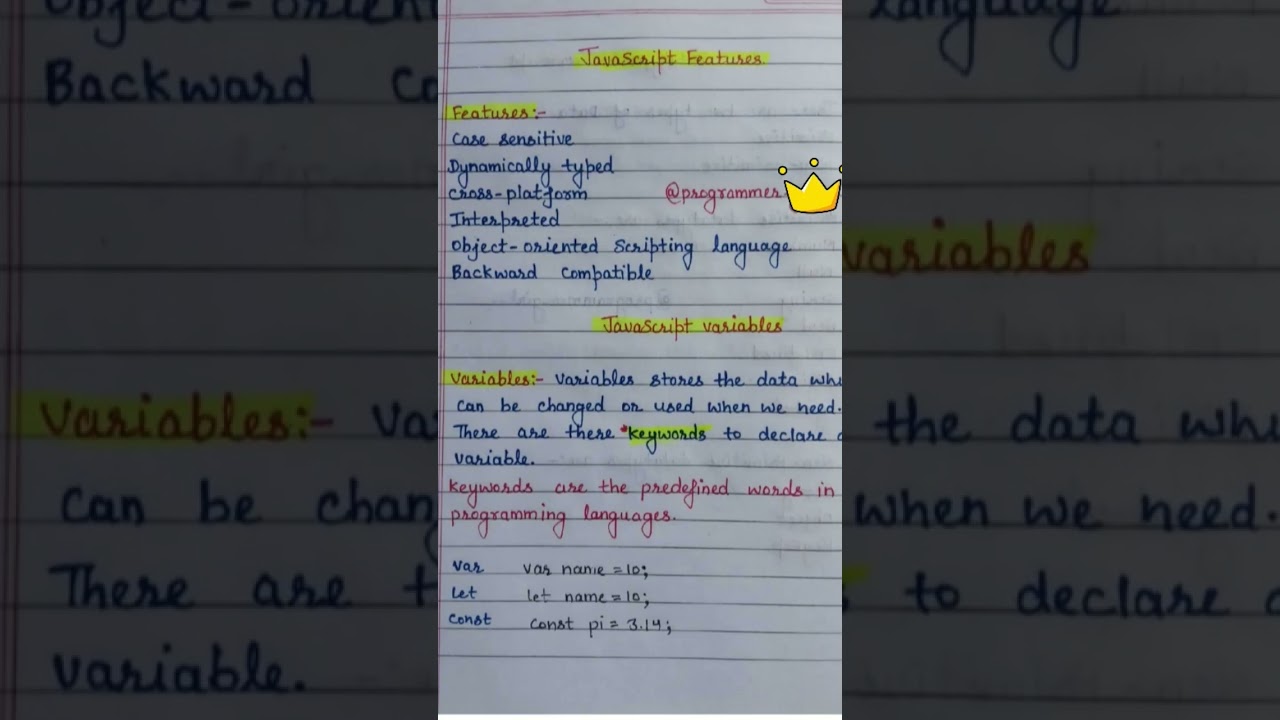 JavaScript Features
Features:-
Case sensitive
Dynamically typed
Cross-platform
@programmer
Interpreted
Object-oriented Scripting language
Backward Compatible
JavaScript variables
Variables:- Variables stores the data whi
can be changed or used when we need.
There are there *keywords to declare a
variable.
keywords are the predefined words in
programming languages.
var var name = 10;
let let name = 10;
const const pi = 3.14;